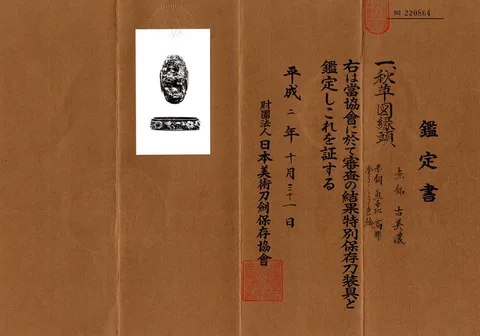 № 220864
鑑定書
一、秋草図縁頭
無銘 古美濃
右は當協會に於て審査の結果特別保存刀装具と
鑑定しこれを証する
平成二年十月三十一日
財團法人日本美術刀劍保存協會